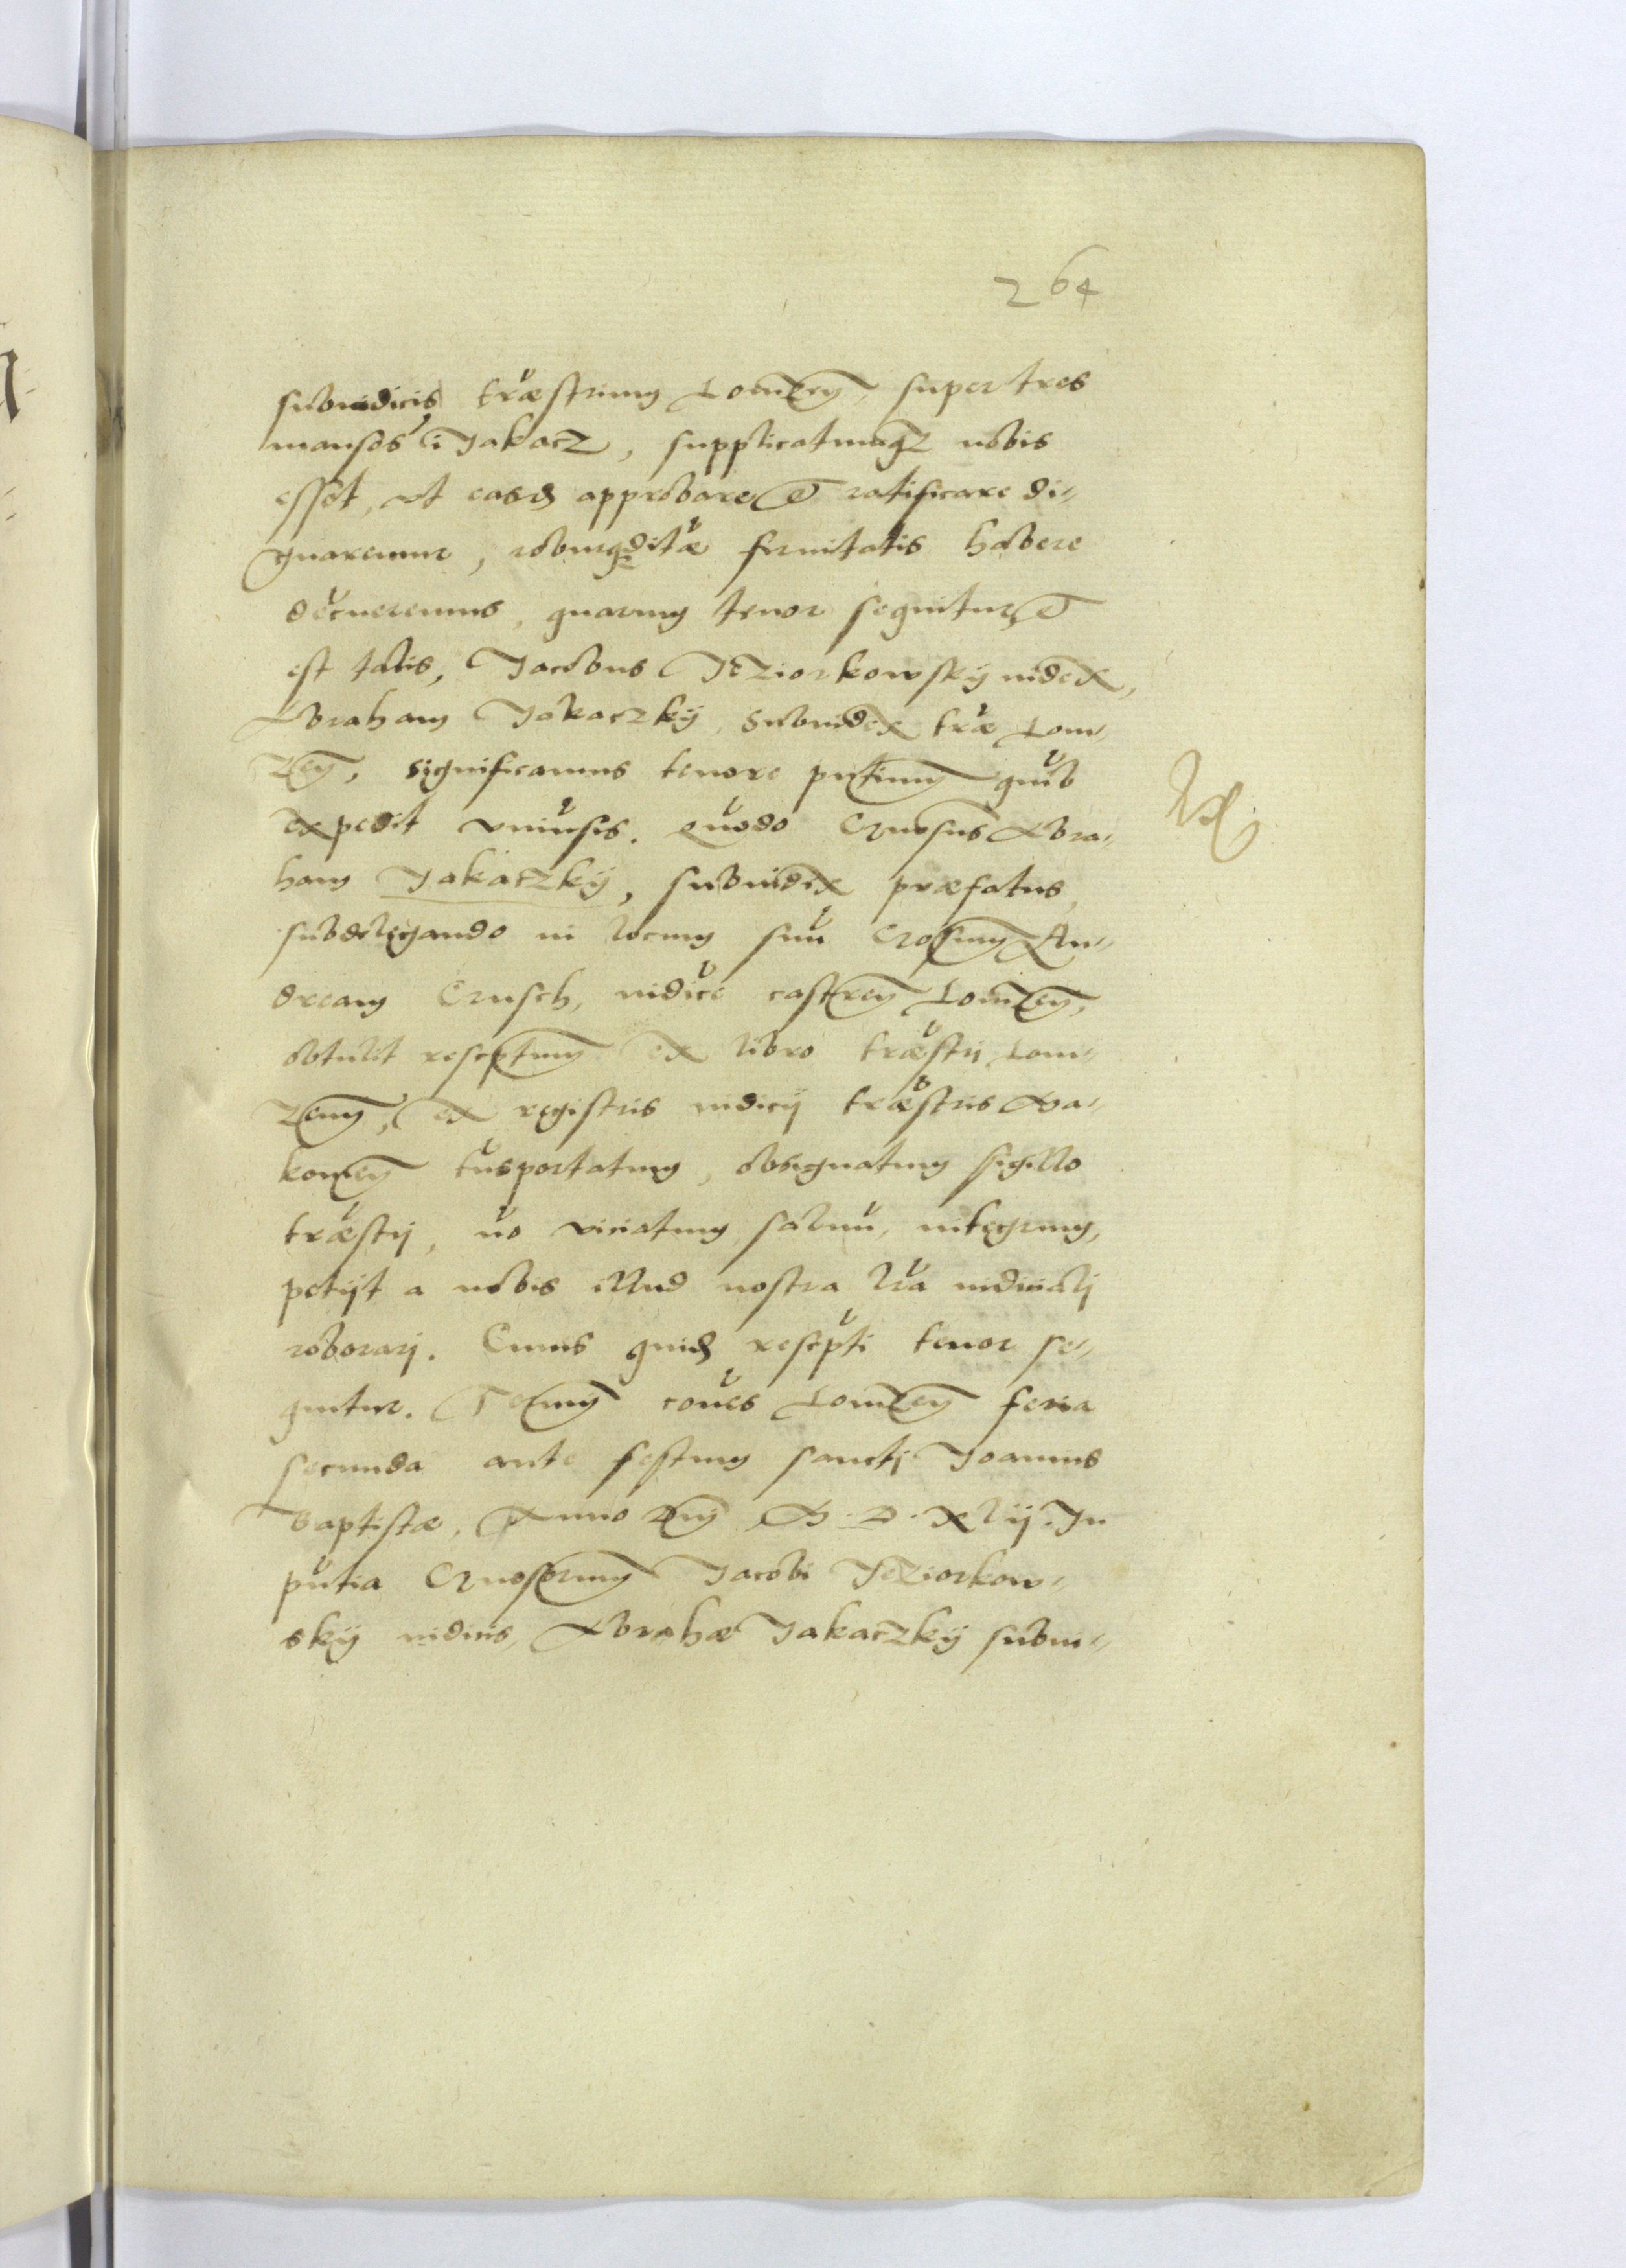 264
subiudicis træstrium Lomzen, super tres
mansos i Jakacz, supplicatumqz nobis
esset, vt easd approbare et ratificare di-
gnaremur, roburq ditæ firmitatis habere
decneremus, quarum tenor sequitur et
est talis, Jacobus Jeziorkowskÿ iudex,
Abraham Jakaczkÿ, Subiudex træ Lom-
zen, significamus tenore pntium quib
expedit vniusis. Quodo Gnosus Abra-
ham Jakaczkÿ, subiudex præfatus,
subdelegando in locum suu Gnosum An-
dream Crusch, iudice castren Lomzen,
obtulit rescptum ex libro træstri Lom-
zen, ex registris iudicij træstris Wa-
komen tnsportatum, obsignatum sigillo
træstri, no viciatum, saluu, integrum,
petijt a nobis illud nostra lra iudicialj
roborarj. Cuius quid rescpti tenor se-
quitur. Termn coues Lomzen feria
secunda ante festum sanctj Joannis
Baptistæ, Anno Dnj M.D.XLij. In
pntia Gnosorum Jacobi Jeziorkow-
skÿ iudicis, Abrahæ Jakaczkÿ subiu-